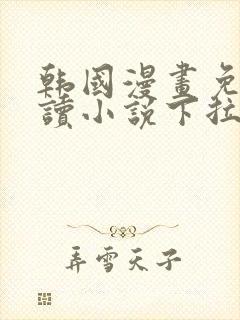 韩國漫畫免
讀小說下拉
弄雪天子